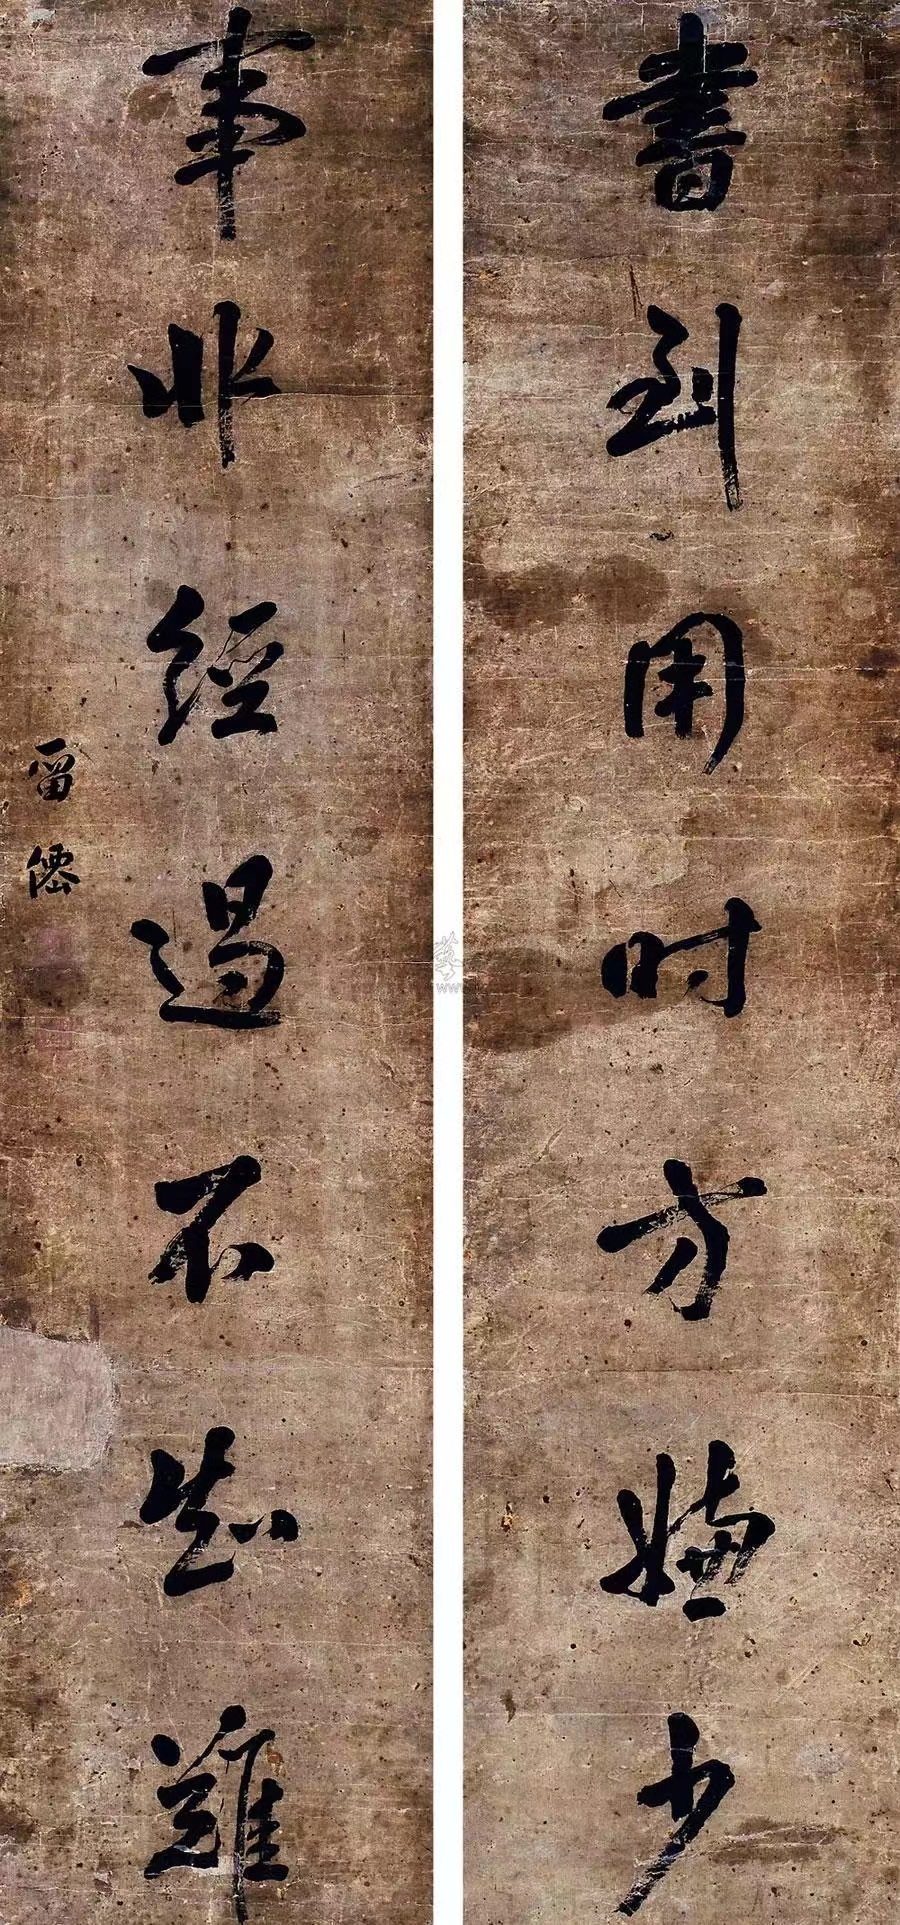 書到用时方嫌少
事非經過不知難
留僊